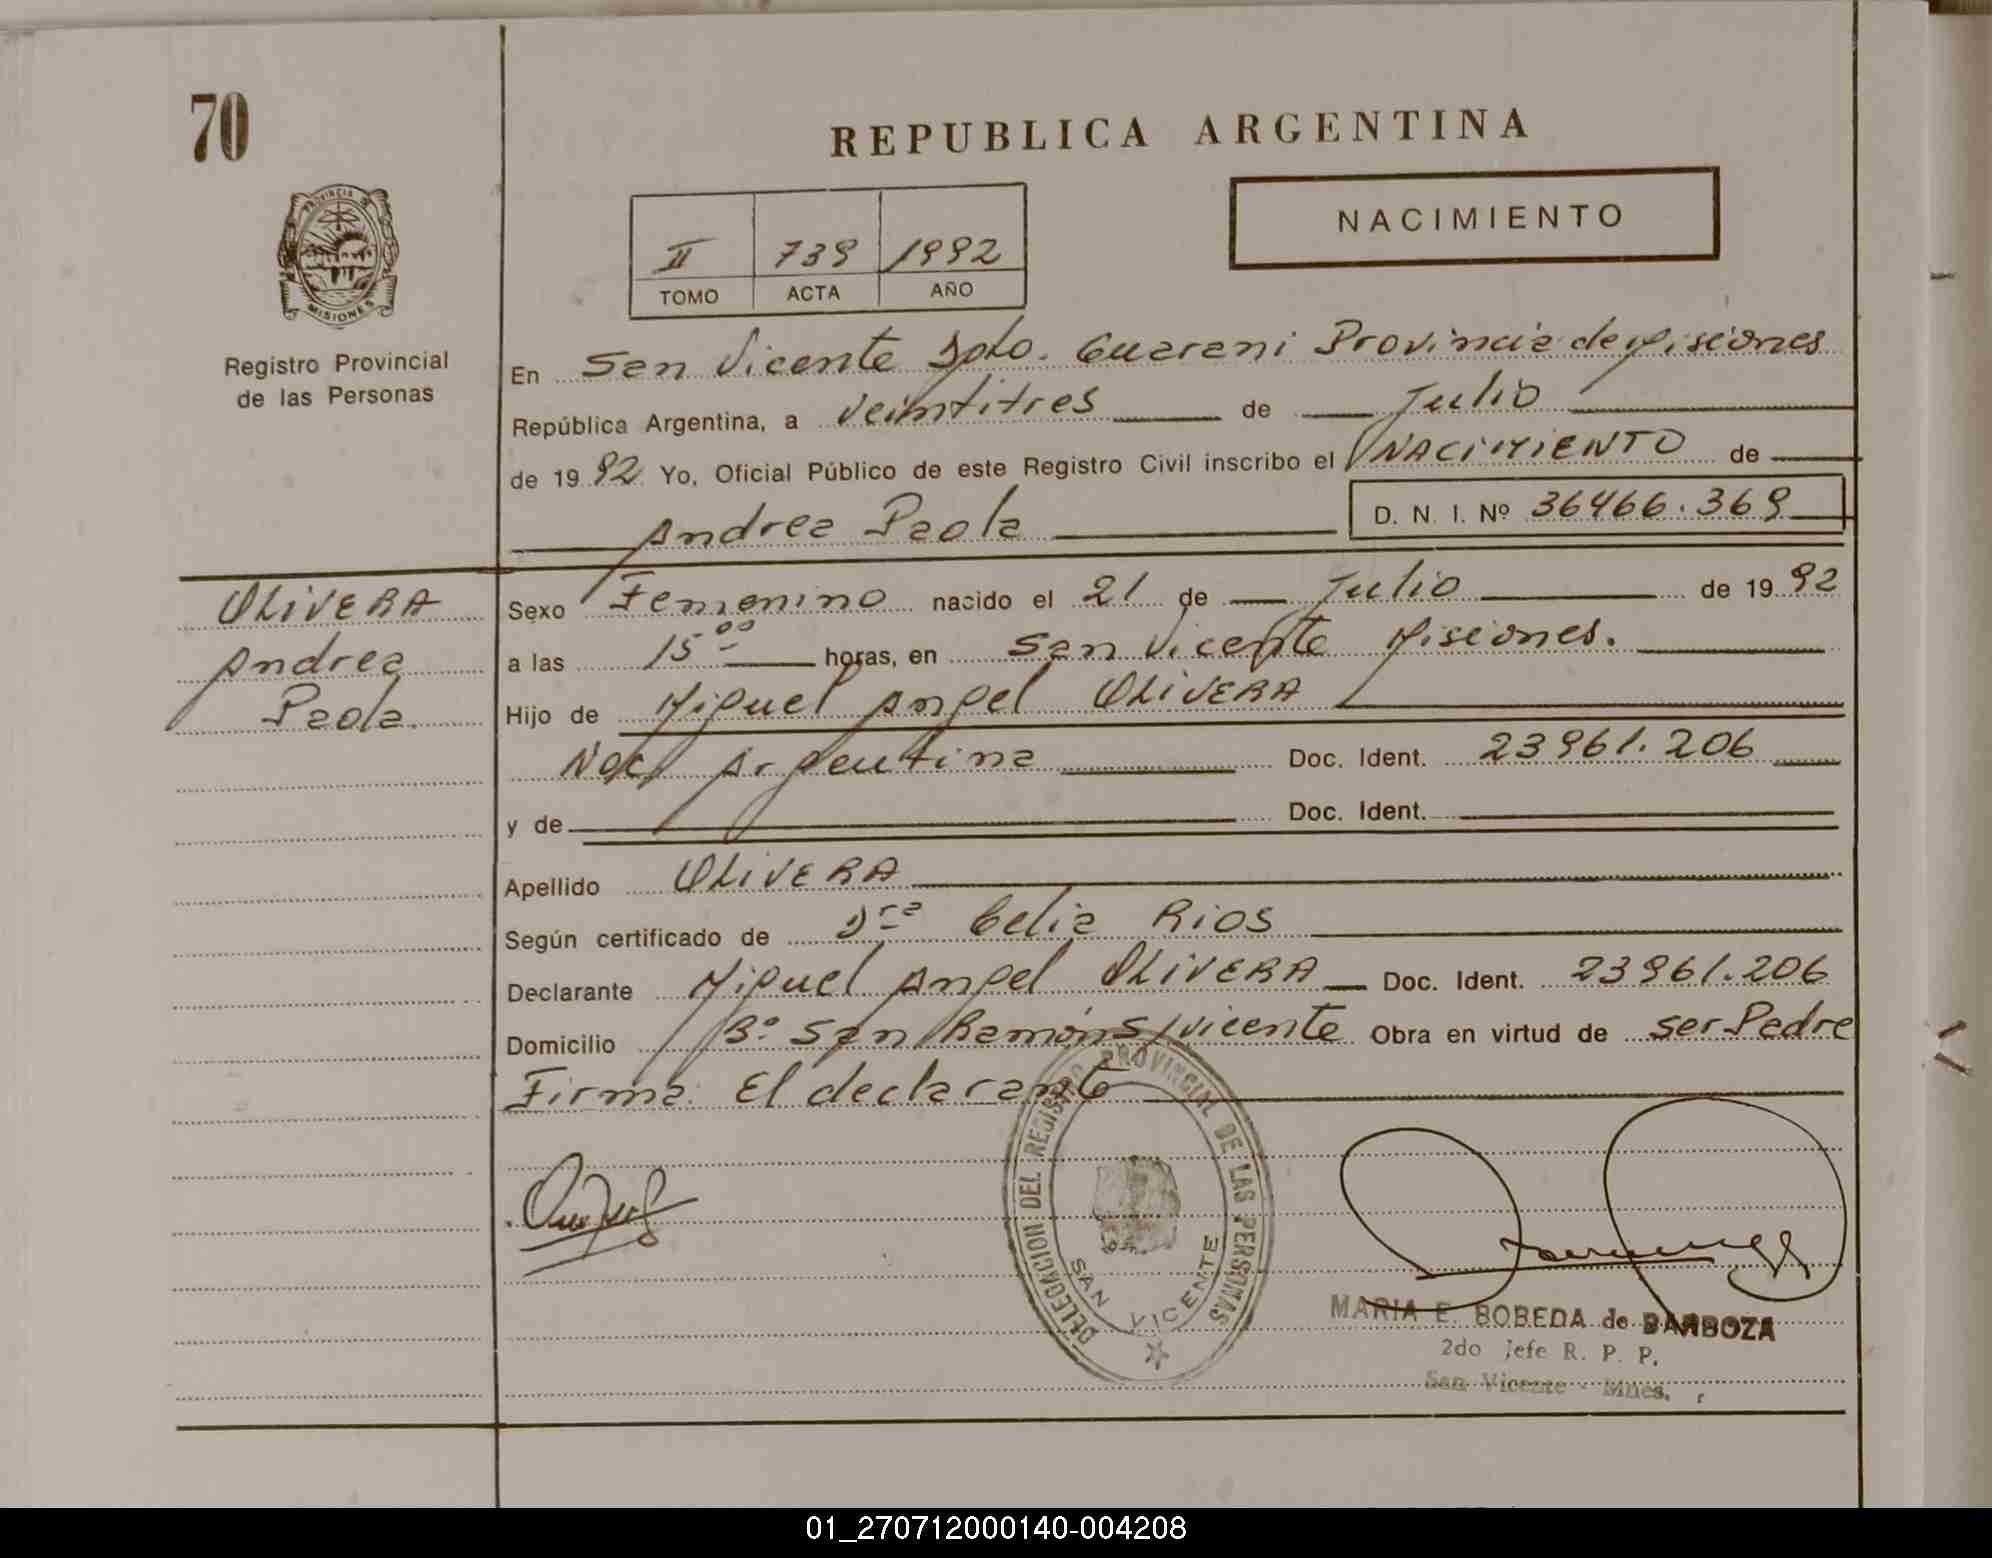 70
REPUBLICA ARGENTINA
PROVINCIA DE
MISIONES
NACIMIENTO
II 739 1992
TOMO ACTA AÑO
Registro Provincial
de las Personas
En San Vicente Dpto. Guarani Provincia de Misiones
República Argentina, a veintitres de Julio
de 1992 Yo, Oficial Público de este Registro Civil inscribo el NACIMIENTO de
Andrea Paola D. N. I. Nº 36466.369
OLIVERA
Andrea
Paola.
Sexo Femenino nacido el 21 de Julio de 1992
a las 15 00 horas, en San Vicente Misiones.
Hijo de Miguel Angel OLIVERA
Nac. Argentina Doc. Ident. 23961.206
y de Doc. Ident.
Apellido OLIVERA
Según certificado de Dra Celia Rios
Declarante Miguel Angel OLIVERA Doc. Ident. 23961.206
Domicilio Bº San Ramón S/vicente Obra en virtud de ser Padre
Firma: El declarante
DELEGACION DEL REGISTRO PROVINCIAL DE LAS PERSONAS
SAN VICENTE
MARIA E. BOBEDA de BARBOZA
2do Jefe R. P. P.
San Vicente - Mnes.
01_270712000140-004208